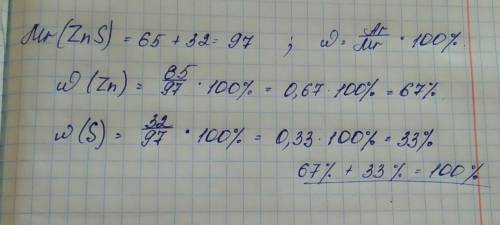 Mr(ZnS) = 65 + 32 = 97 ; ω = Ar/Mr · 100%
ω(Zn) = 65/97 · 100% = 0,67 · 100% = 67%
ω(S) = 32/97 · 100% = 0,33 · 100% = 33%
67% + 33% = 100%